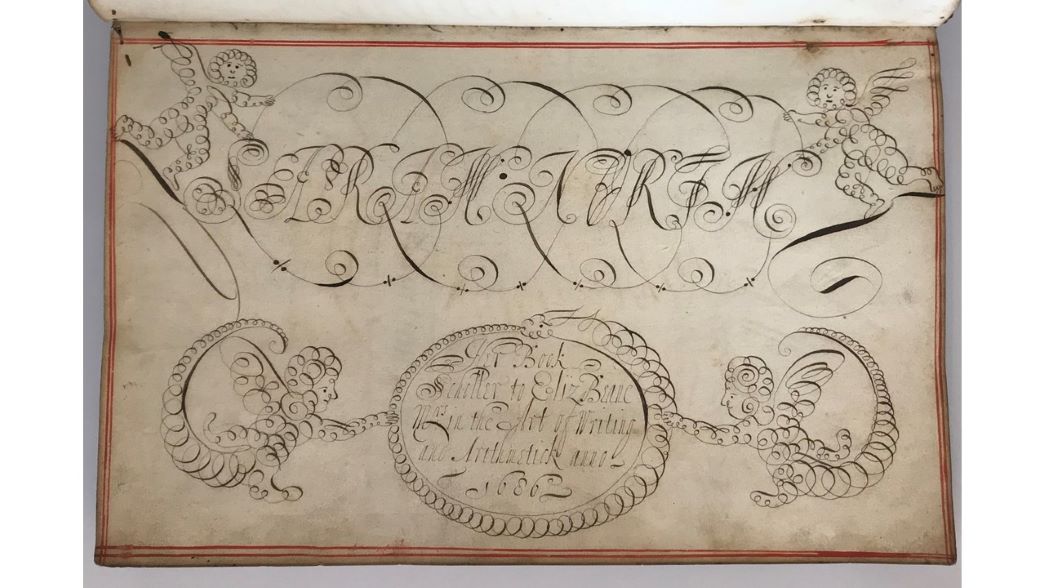 Hir Book
Scholler to Eliz Beane
Mrs in the Art of Writing
and Arithmetick anno
1686